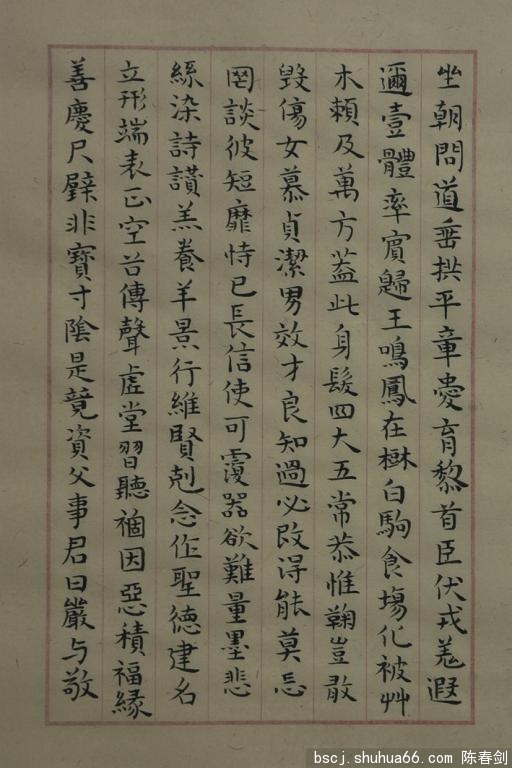 坐朝問道垂拱平章愛育黎首臣伏戎羌遐
邇壹體率賓歸王鳴鳳在樹白駒食場化被艸
木賴及萬方蓋此身髮四大五常恭惟鞠豈敢
毀傷女慕貞潔男效才良知過必改得能莫忘
罔談彼短靡恃己長信使可覆器欲難量墨悲
絲染詩讚羔養羊景行維賢剋念作聖德建名
立形端表正空谷傳聲虛堂習聽禍因惡積福緣
善慶尺璧非寶寸陰是競資父事君曰嚴与敬
bscj.shuhua66.com 陈春剑